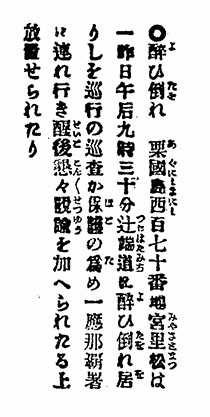 ◎醉ひ倒れ　粟國島西百七十番地宮里松は
一昨日午后九時三十分辻端道に醉ひ倒れ居
りしを巡行の巡査か保護の爲め一應那覇署
に連れ行き醒後懇々說諭を加へられたる上
放還せられたり